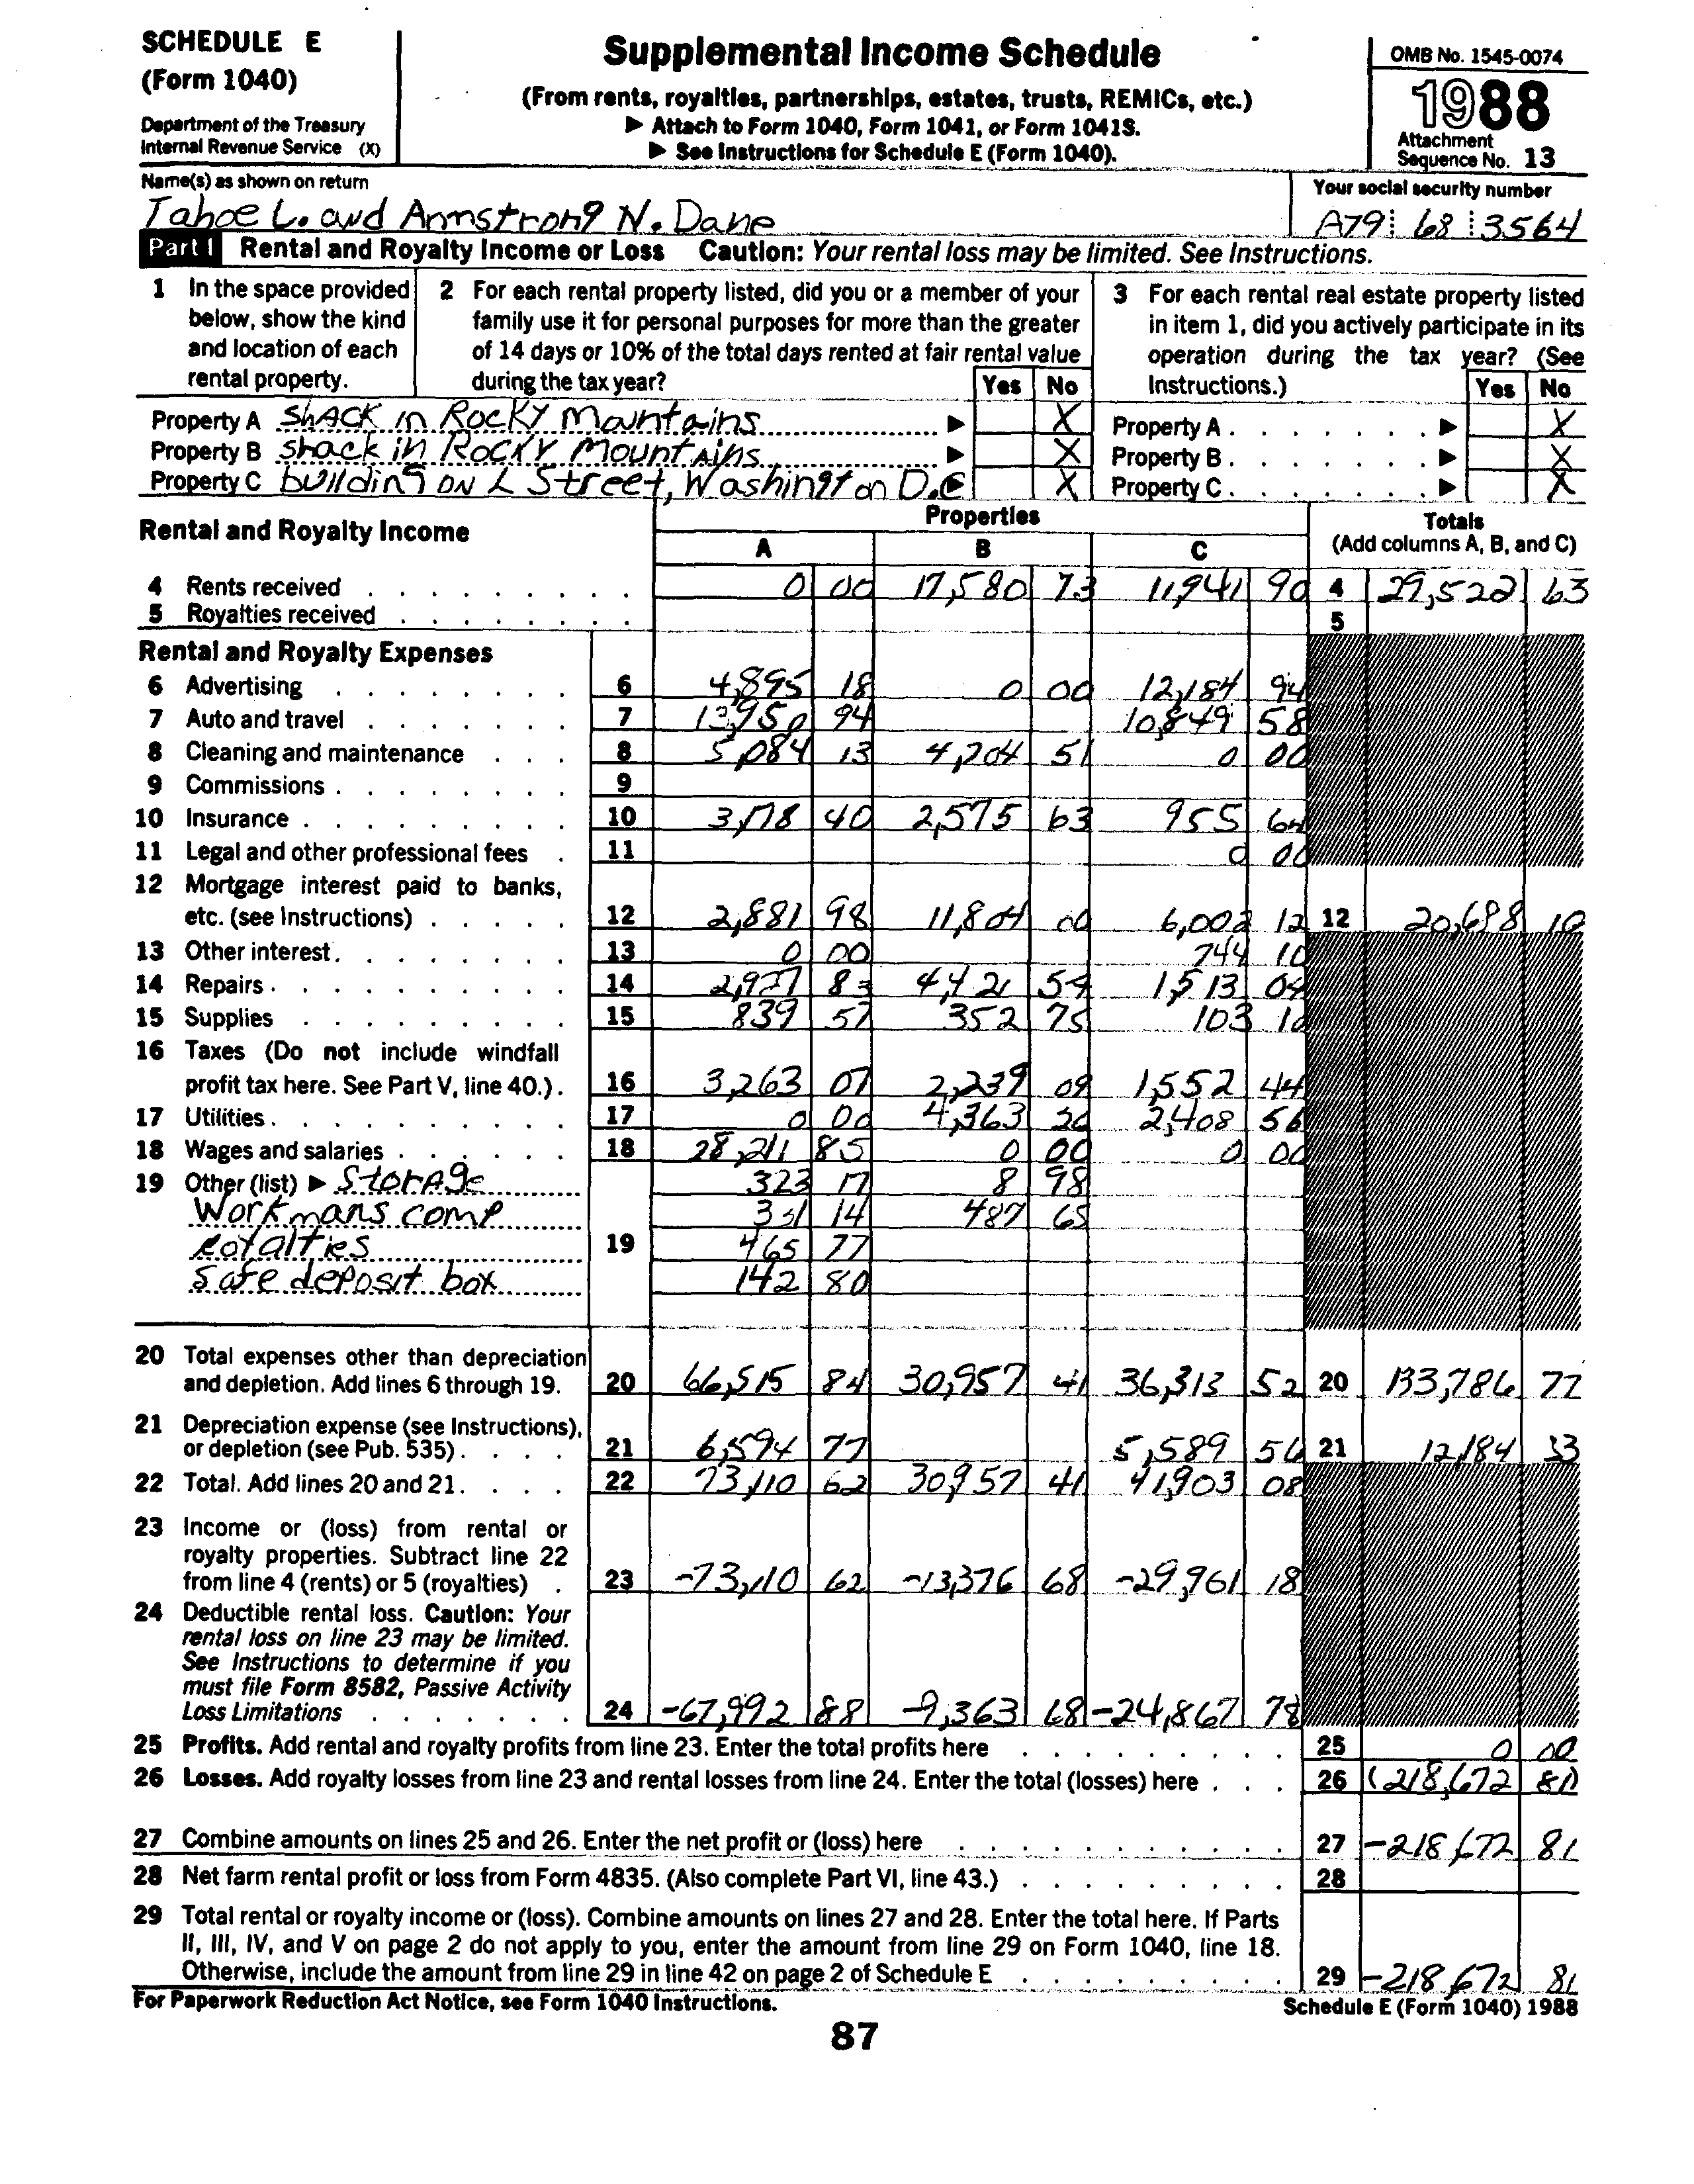 SCHEDULE E
(Form 1040)
Department of the Treasury
Internal Revenue Service (X)
Supplemental Income Schedule
(From rents, royalties, partnerships, estates, trusts, REMICs, etc.)
▶ Attach to Form 1040, Form 1041, or Form 1041S.
▶ See Instructions for Schedule E (Form 1040).
OMB No. 1545-0074
1988
Attachment
Sequence No. 13
Name(s) as shown on return
Tahoe L. and Armstrong N. Dane
Your social security number
A79 68 3564
Part I Rental and Royalty Income or Loss Caution: Your rental loss may be limited. See Instructions.
1 In the space provided
below, show the kind
and location of each
rental property.
2 For each rental property listed, did you or a member of your
family use it for personal purposes for more than the greater
of 14 days or 10% of the total days rented at fair rental value
during the tax year? Yes No
3 For each rental real estate property listed
in item 1, did you actively participate in its
operation during the tax year? (See
Instructions.) Yes No
Property A Shack in Rocky Mountains ▶ X Property A ▶ X
Property B Shack in Rocky Mountains ▶ X Property B ▶ X
Property C building on L Street, Washington D.C ▶ X Property C ▶ X
Rental and Royalty Income
Properties
A B C
Totals
(Add columns A, B, and C)
4 Rents received 0 00 17,580 73 11,941 90 4 29,522 63
5 Royalties received 5
Rental and Royalty Expenses
6 Advertising 6 4,895 18 0 00 12,184 94
7 Auto and travel 7 13,950 94 10,849 58
8 Cleaning and maintenance 8 5,084 13 4,204 51 0 00
9 Commissions 9
10 Insurance 10 3,178 40 2,575 63 955 64
11 Legal and other professional fees 11 0 00
12 Mortgage interest paid to banks,
etc. (see Instructions) 12 2,881 98 11,804 00 6,002 12 12 20,688 10
13 Other interest 13 0 00 744 10
14 Repairs 14 2,927 83 4,421 59 1,513 04
15 Supplies 15 839 57 352 75 103 10
16 Taxes (Do not include windfall
profit tax here. See Part V, line 40.) 16 3,263 07 2,239 09 1,552 44
17 Utilities 17 0 00 4,363 20 2,408 56
18 Wages and salaries 18 28,211 85 0 00 0 00
19 Other (list) ▶ Storage 323 17 8 98
Workmans comp 351 14 487 65
Royalties 19 465 77
Safe deposit box 142 80
20 Total expenses other than depreciation
and depletion. Add lines 6 through 19. 20 66,515 84 30,957 41 36,313 52 20 133,786 77
21 Depreciation expense (see Instructions),
or depletion (see Pub. 535) 21 6,594 77 5,589 56 21 12,184 33
22 Total. Add lines 20 and 21. 22 73,110 62 30,957 41 41,903 08
23 Income or (loss) from rental or
royalty properties. Subtract line 22
from line 4 (rents) or 5 (royalties) 23 -73,110 62 -13,376 68 -29,961 18
24 Deductible rental loss. Caution: Your
rental loss on line 23 may be limited.
See Instructions to determine if you
must file Form 8582, Passive Activity
Loss Limitations 24 -67,992 88 -9,363 68 -24,867 78
25 Profits. Add rental and royalty profits from line 23. Enter the total profits here 25 0 00
26 Losses. Add royalty losses from line 23 and rental losses from line 24. Enter the total (losses) here 26 (218,672 81)
27 Combine amounts on lines 25 and 26. Enter the net profit or (loss) here 27 -218,672 81
28 Net farm rental profit or loss from Form 4835. (Also complete Part VI, line 43.) 28
29 Total rental or royalty income or (loss). Combine amounts on lines 27 and 28. Enter the total here. If Parts
II, III, IV, and V on page 2 do not apply to you, enter the amount from line 29 on Form 1040, line 18.
Otherwise, include the amount from line 29 in line 42 on page 2 of Schedule E 29 -218,672 81
For Paperwork Reduction Act Notice, see Form 1040 Instructions. Schedule E (Form 1040) 1988
87